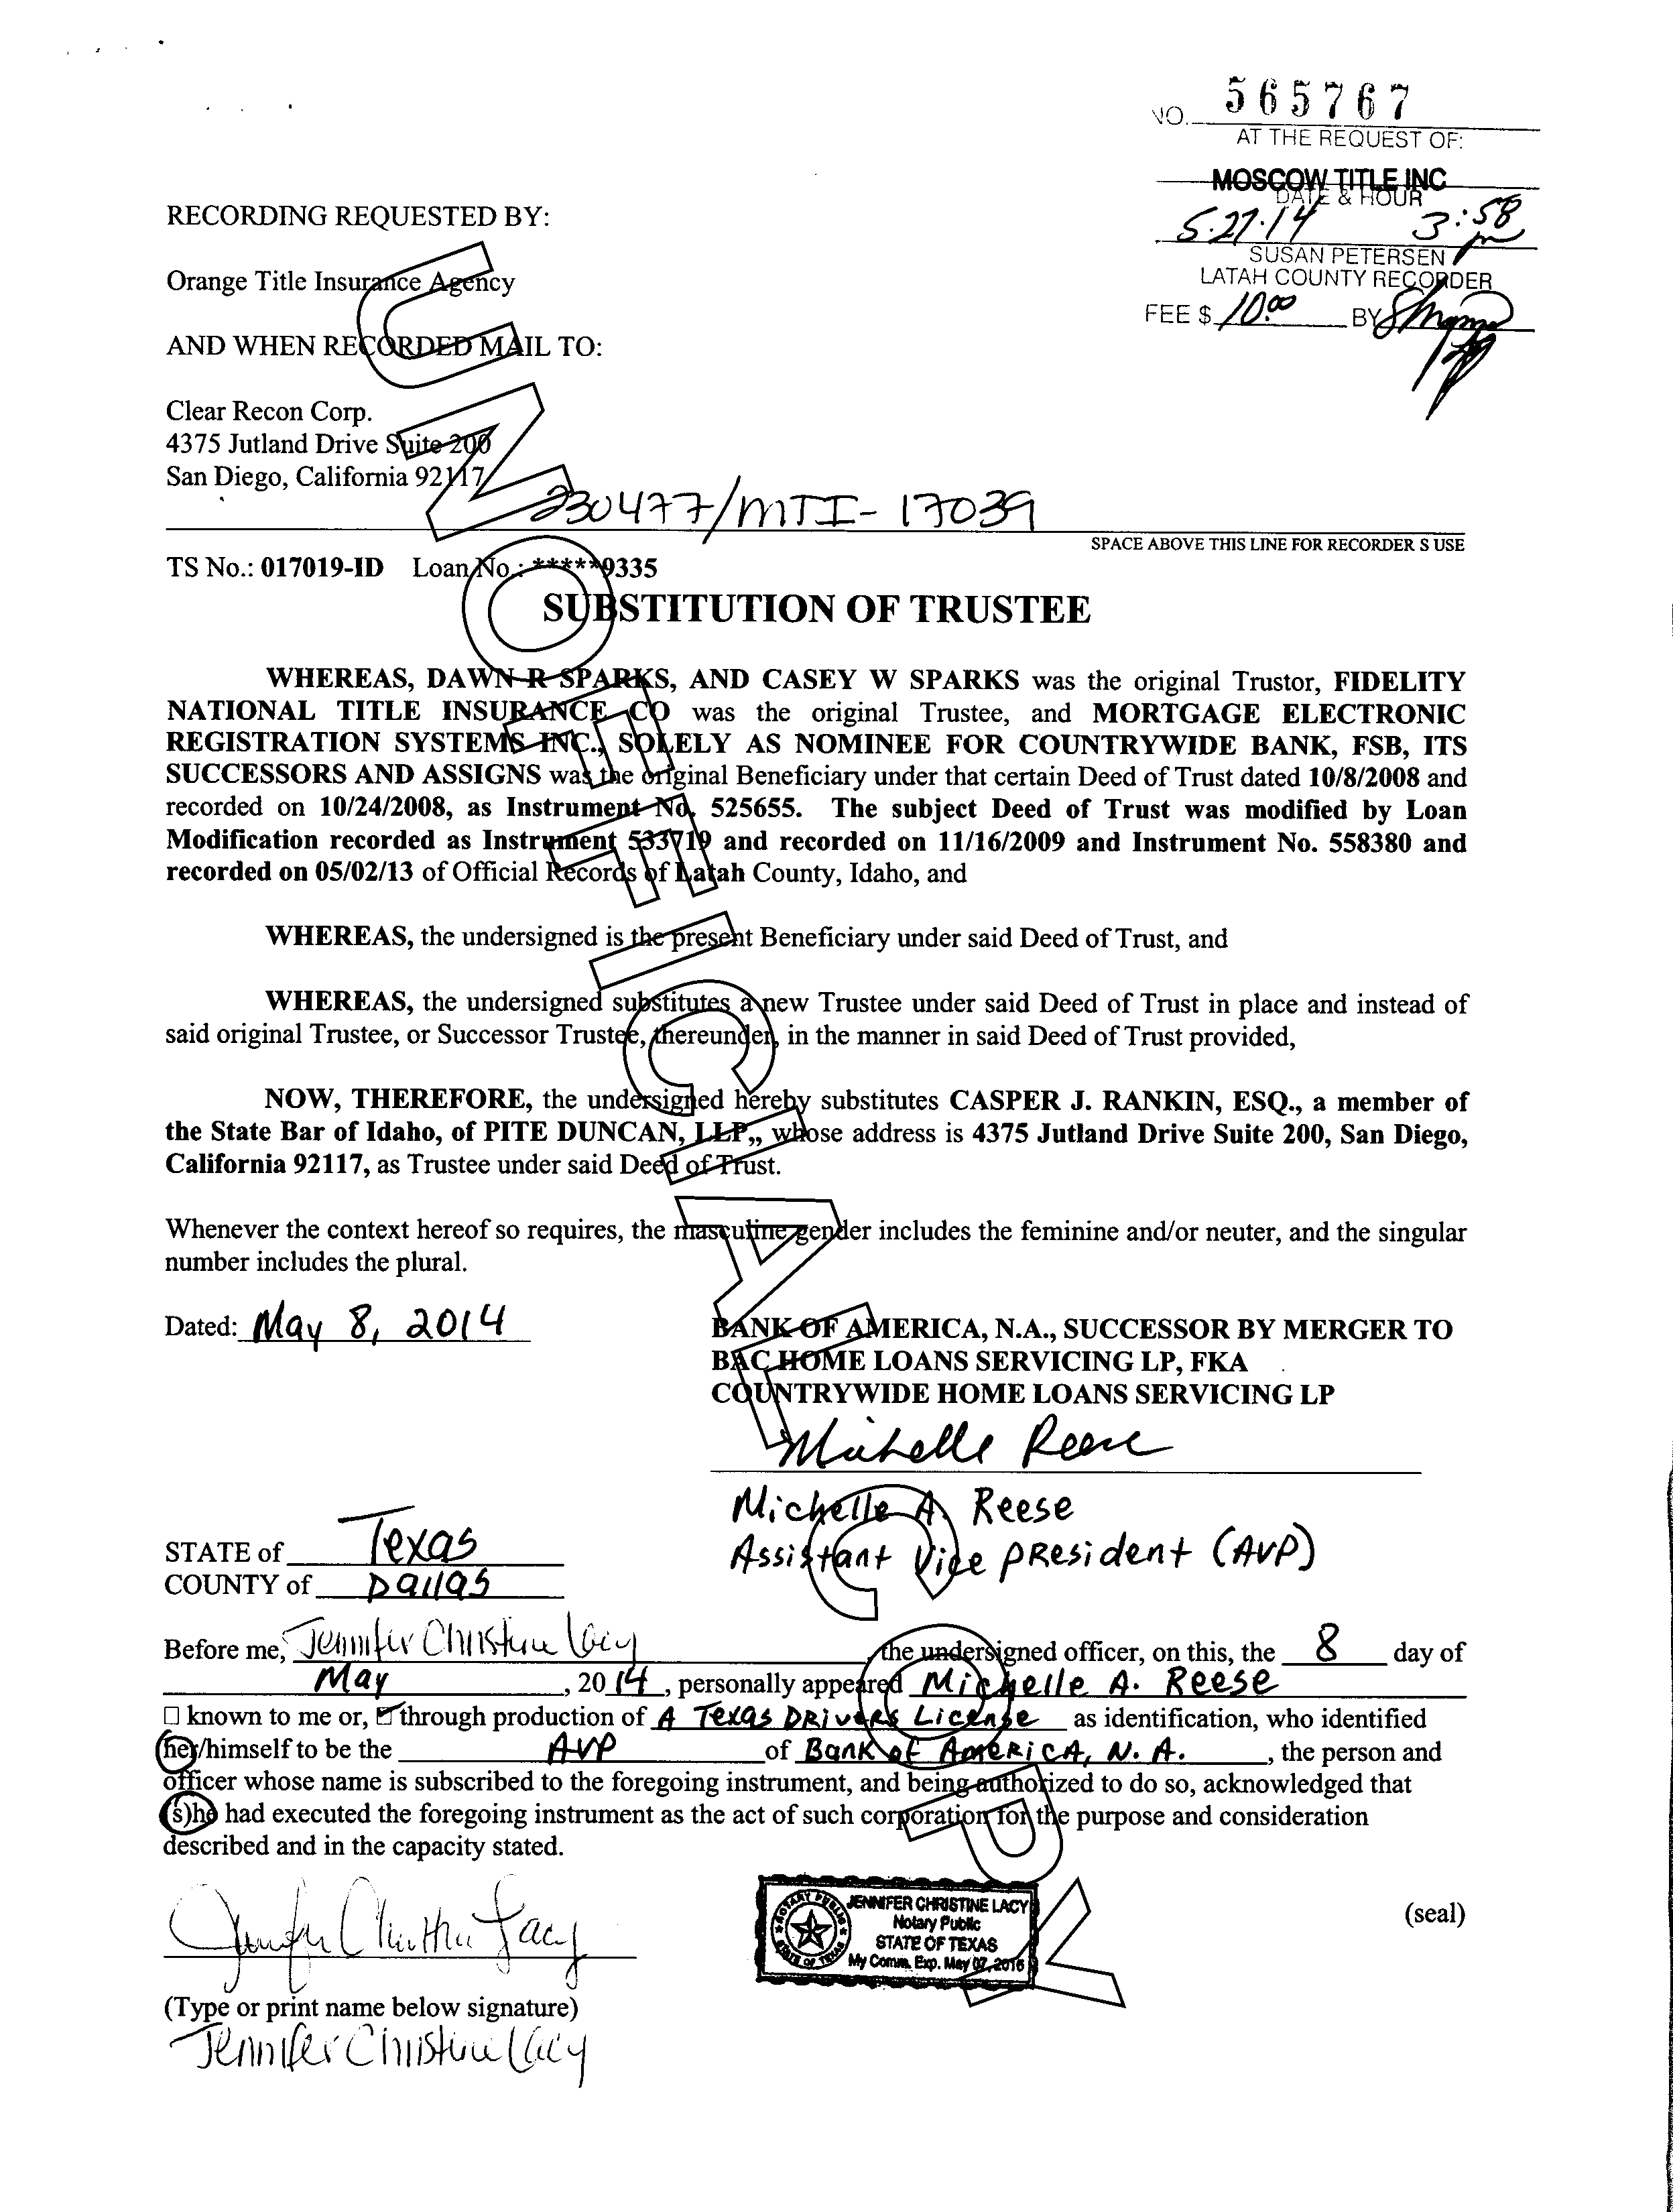 NO. 565767
AT THE REQUEST OF:
MOSCOW TITLE INC
DATE & HOUR
5·27·14 3:58 pm
SUSAN PETERSEN
LATAH COUNTY RECORDER
FEE $ 10.00 BY
RECORDING REQUESTED BY:
Orange Title Insurance Agency
AND WHEN RECORDED MAIL TO:
Clear Recon Corp.
4375 Jutland Drive Suite 200
San Diego, California 92117
230477/MTI-17039
SPACE ABOVE THIS LINE FOR RECORDER S USE
TS No.: 017019-ID Loan No.: *****9335
SUBSTITUTION OF TRUSTEE
WHEREAS, DAWN R SPARKS, AND CASEY W SPARKS was the original Trustor, FIDELITY
NATIONAL TITLE INSURANCE CO was the original Trustee, and MORTGAGE ELECTRONIC
REGISTRATION SYSTEMS INC., SOLELY AS NOMINEE FOR COUNTRYWIDE BANK, FSB, ITS
SUCCESSORS AND ASSIGNS was the original Beneficiary under that certain Deed of Trust dated 10/8/2008 and
recorded on 10/24/2008, as Instrument No. 525655. The subject Deed of Trust was modified by Loan
Modification recorded as Instrument 533719 and recorded on 11/16/2009 and Instrument No. 558380 and
recorded on 05/02/13 of Official Records of Latah County, Idaho, and
WHEREAS, the undersigned is the present Beneficiary under said Deed of Trust, and
WHEREAS, the undersigned substitutes a new Trustee under said Deed of Trust in place and instead of
said original Trustee, or Successor Trustee, thereunder, in the manner in said Deed of Trust provided,
NOW, THEREFORE, the undersigned hereby substitutes CASPER J. RANKIN, ESQ., a member of
the State Bar of Idaho, of PITE DUNCAN, LLP,, whose address is 4375 Jutland Drive Suite 200, San Diego,
California 92117, as Trustee under said Deed of Trust.
Whenever the context hereof so requires, the masculine gender includes the feminine and/or neuter, and the singular
number includes the plural.
Dated: May 8, 2014
BANK OF AMERICA, N.A., SUCCESSOR BY MERGER TO
BAC HOME LOANS SERVICING LP, FKA
COUNTRYWIDE HOME LOANS SERVICING LP
Michelle Reese
Michelle A. Reese
Assistant Vice President (AVP)
STATE of Texas
COUNTY of Dallas
Before me, Jennifer Christine Lacy, the undersigned officer, on this, the 8 day of
May, 2014, personally appeared Michelle A. Reese
☐ known to me or, ☑ through production of A Texas Drivers License as identification, who identified
her/himself to be the AVP of Bank of America, N.A., the person and
officer whose name is subscribed to the foregoing instrument, and being authorized to do so, acknowledged that
(s)he had executed the foregoing instrument as the act of such corporation for the purpose and consideration
described and in the capacity stated.
Jennifer Christine Lacy
JENNIFER CHRISTINE LACY
Notary Public
STATE OF TEXAS
My Comm. Exp. May 07, 2016
NOTARY PUBLIC
STATE OF TEXAS
(seal)
(Type or print name below signature)
Jennifer Christine Lacy
UNOFFICIAL COPY